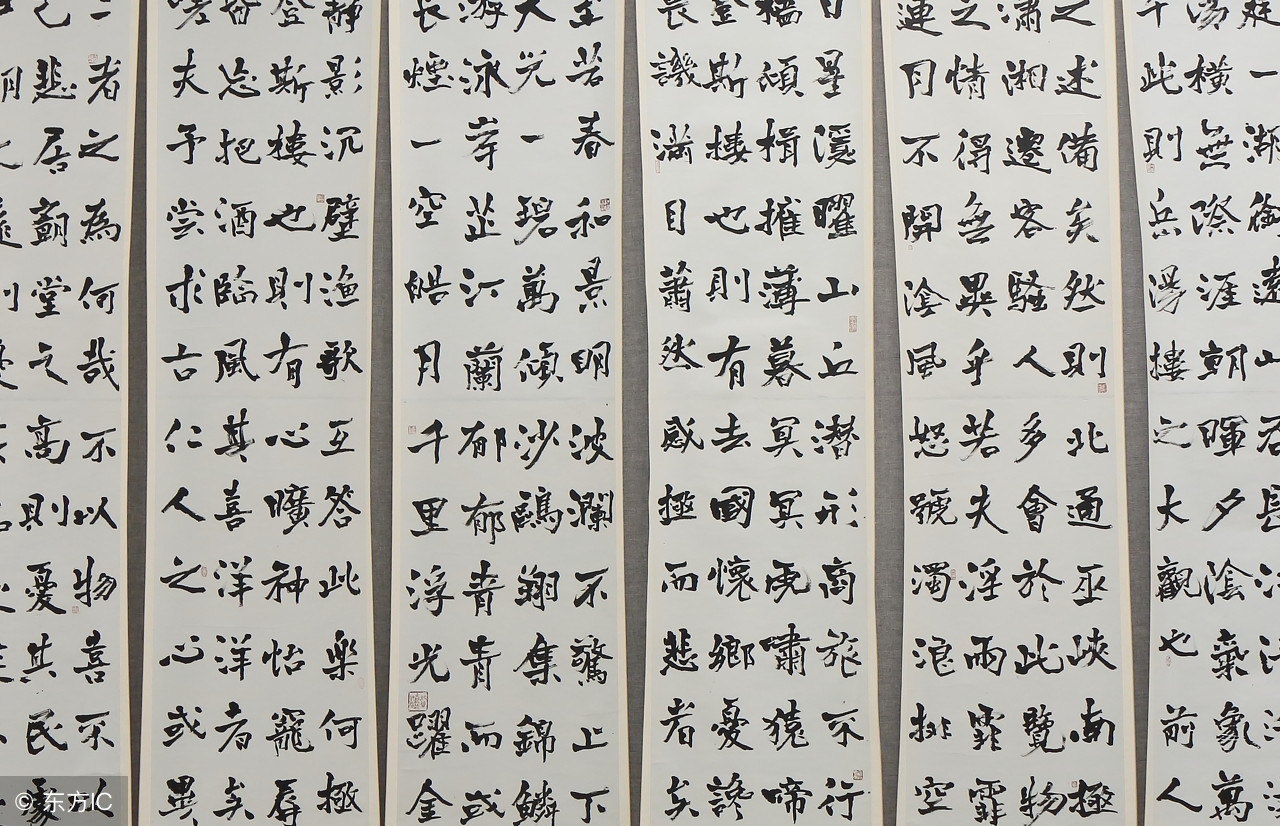 湯橫無際涯朝暉夕陰氣象萬
千此則岳陽樓之大觀也前人
之述備矣然則北通巫峽南極
瀟湘遷客騷人多會於此覽物
之情得無異乎若夫淫雨霏霏
連月不開陰風怒號濁浪排空
日星隱曜山丘潛形商旅不行
檣傾楫摧薄暮冥冥虎嘯猿啼
登斯樓也則有去國懷鄉憂讒
畏譏滿目蕭然感極而悲者矣
至若春和景明波瀾不驚上下
天光一碧萬傾沙鷗翔集錦鱗
游泳岸芷汀蘭郁郁青青而或
長煙一空皓月千里浮光躍金
靜影沉璧漁歌互答此樂何極
登斯樓也則有心曠神怡寵辱
皆忘把酒臨風其喜洋洋者矣
嗟夫予嘗求古仁人之心或異
二者之為何哉不以物喜不以
己悲居廟堂之高則憂其民處
© 东方IC